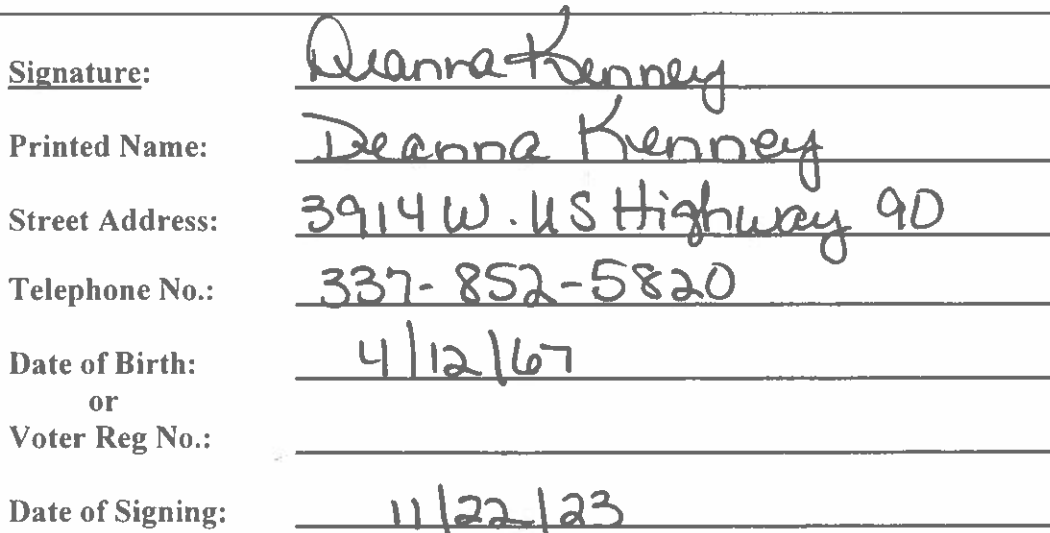 Signature: Deanna Kenney
Printed Name: Deanna Kenney
Street Address: 3914 W. US Highway 90
Telephone No.: 337-852-5820
Date of Birth: 4/12/67
or
Voter Reg No.:
Date of Signing: 11/22/23